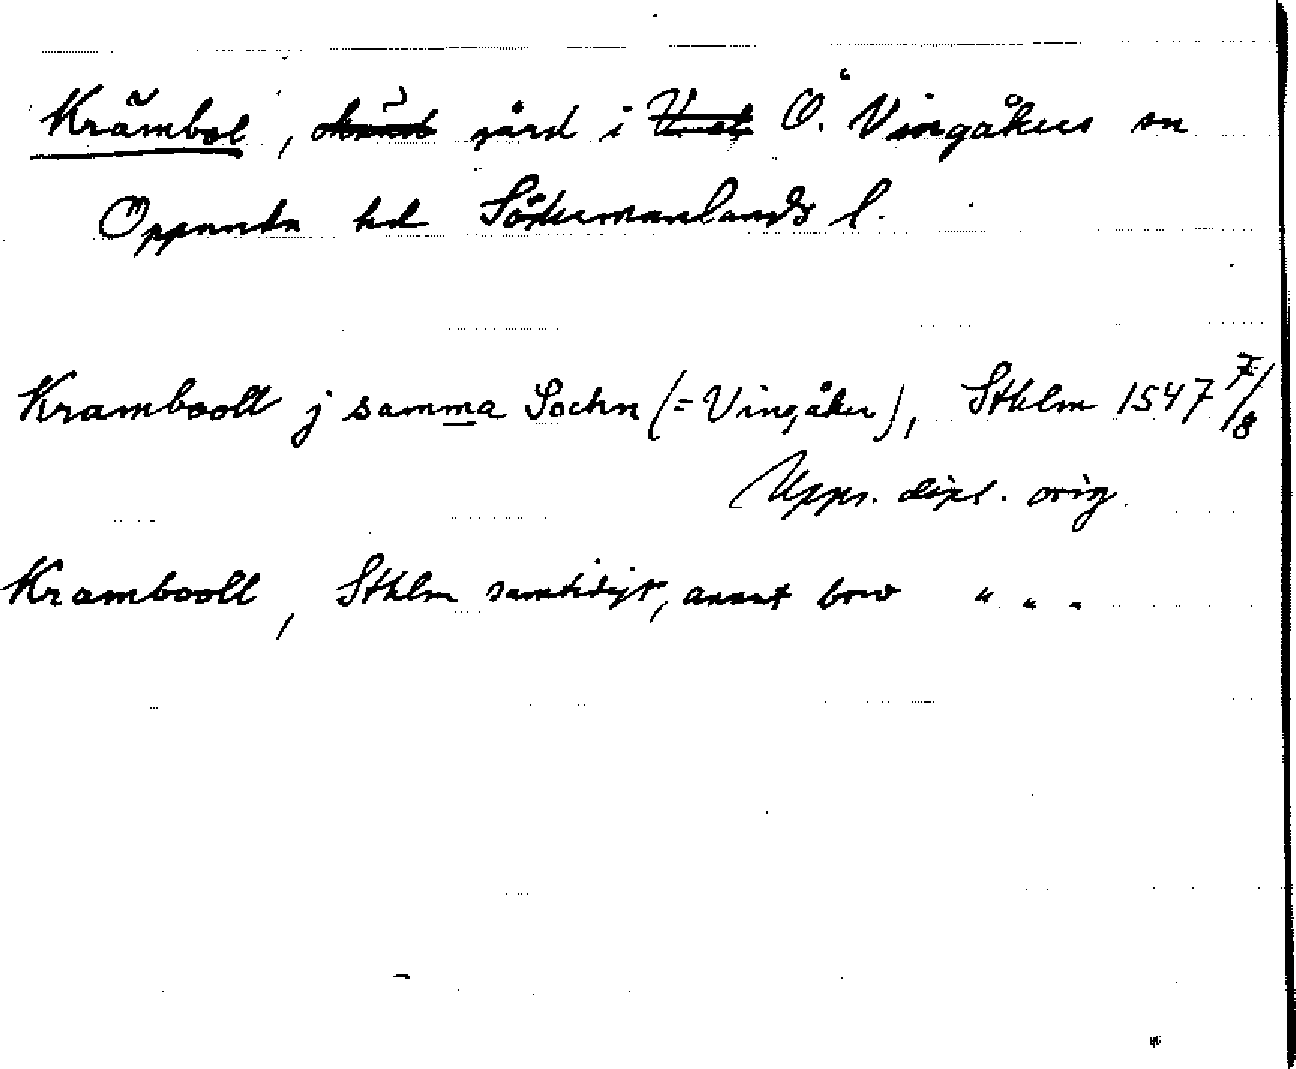 Krämbol, gård i Ö. Vingåkers sn
Oppunda hd Södermanlands l.
Krambooll j samma Sochn (= Vingåker), Sthlm 1547 7/8
Upps. dipl. orig.
Krambooll, Sthlm samtidigt, annat brev " " "